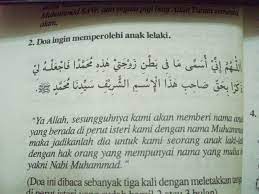 Muhammad SAW, dan
akan.
2. Doa ingin memperolehi anak lelaki.
اَللّٰهُمَّ إِنِّيْ أُسَمِّى مَا فِى بَطْنِ زَوْجَتِيْ هٰذِهِ مُحَمَّدًا فَاجْعَلْهُ لِيْ
ذَكَرًا بِحَقِّ صَاحِبِ هٰذَا الْاِسْمِ الشَّرِيْفِ سَيِّدِنَا مُحَمَّدٍ
"Ya Allah, sesungguhnya kami akan memberi nama
yang berada di perut isteri kami dengan nama Muhammad
maka jadikanlah dia untuk kami seorang anak lelaki
dengan hak orang yang mempunyai nama yang mulia
yakni Nabi Muhammad."
(Doa ini dibaca sebanyak tiga kali dengan meletakkan
di perut isteri
4.